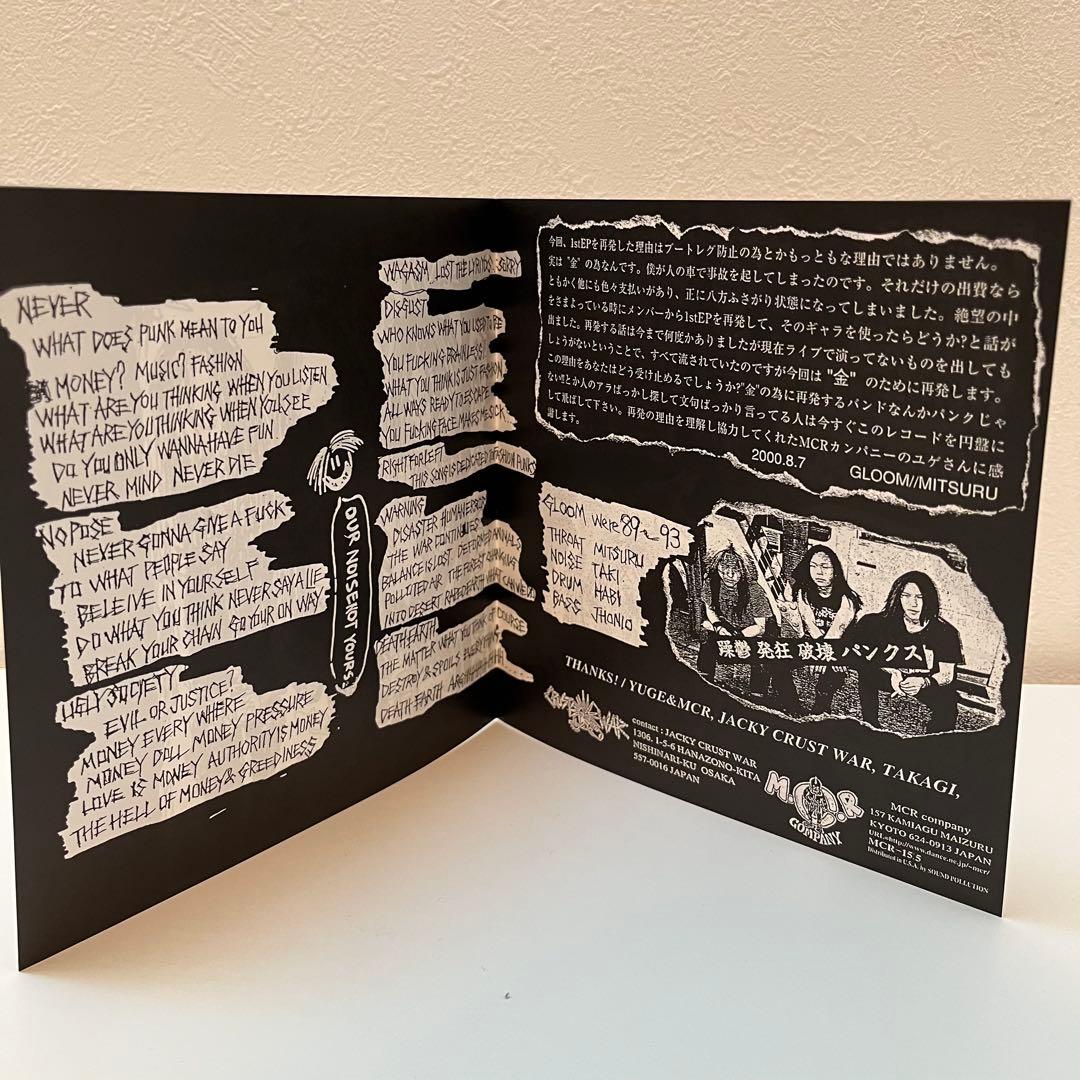 NEVER
WHAT DOES PUNK MEAN TO YOU
MONEY? MUSIC? FASHION
WHAT ARE YOU THINKING WHEN YOU LISTEN
WHAT ARE YOU THINKING WHEN YOU SEE
DO YOU ONLY WANNA HAVE FUN
NEVER MIND NEVER DIE
NO POSE
NEVER GONNA GIVE A FUSK
TO WHAT PEOPLE SAY
BELEIVE IN YOURSELF
DO WHAT YOU THINK NEVER SAY A LIE
BREAK YOUR CHAIN GO YOUR ON WAY
UGLY SOCIETY
EVIL OR JUSTICE?
MONEY EVERY WHERE
MONEY DOLL MONEY PRESSURE
LOVE IS MONEY AUTHORITY IS MONEY
THE HELL OF MONEY & GREEDINESS
OUR NOISE!!OT YOURS
WAGASM LOST THE LYRICS SORRY
DISGUST
WHO KNOWS WHAT YOU USED
YOU FUCKING BRAINLESS!
WHAT YOU THINK IS JUST FASHION
ALL WAYS READY TO ESCAPE
YOU FUCKING FACE MAKES ME SICK
RIGHT FOR LEFT
THIS SONG IS DEDICATED FASHION PUNKS
WARNING
DISASTER HUMAN ERROR
THE WAR CONTINUES
BALANCE IS LOST DEFORMED ANIMALS
POLLUTED AIR THE FOREST
INTO DESERT RAPED EARTH WHAT CAN WE DO
DEATH EARTH
THE MATTER WHAT YOU THINK OF COURSE
DESTROY & SPOILS EVERYTHING
DEATH EARTH
今回、1stEPを再発した理由はブートレグ防止の為とかもっともな理由ではありません。
実は"金"の為なんです。僕が人の車で事故を起してしまったのです。それだけの出費なら
ともかく他にも色々支払いがあり、正に八方ふさがり状態になってしまいました。絶望の中
をさまよっている時にメンバーから1stEPを再発して、そのギャラを使ったらどうか?と話が
出ました。再発する話は今まで何度かありましたが現在ライブで演ってないものを出しても
しょうがないということで、すべて流されていたのですが今回は"金"のために再発します。
この理由をあなたはどう受け止めるでしょうか?"金"の為に再発するバンドなんかパンクじゃ
ない!!とか人のアラばっかし探して文句ばっかり言ってる人は今すぐこのレコードを円盤に
して飛ばして下さい。再発の理由を理解し協力してくれたMCRカンパニーのユゲさんに感
謝します。
2000.8.7 GLOOM//MITSURU
GLOOM were 89~93
THROAT MITSURU
NOISE TAKI
DRUM HABI
BASS JHONIO
躁鬱 発狂 破壊 パンクス!
THANKS! / YUGE&MCR, JACKY CRUST WAR, TAKAGI,
CRUST WAR
contact : JACKY CRUST WAR
1306. 1-5-6 HANAZONO-KITA
NISHINARI-KU OSAKA
557-0016 JAPAN
M.C.R
COMPANY
MCR company
157 KAMIAGU MAIZURU
KYOTO 624-0913 JAPAN
URL=http://www.dance.ne.jp/~mcr/
MCR-155
Distributed in U.S.A. by SOUND POLLUTION